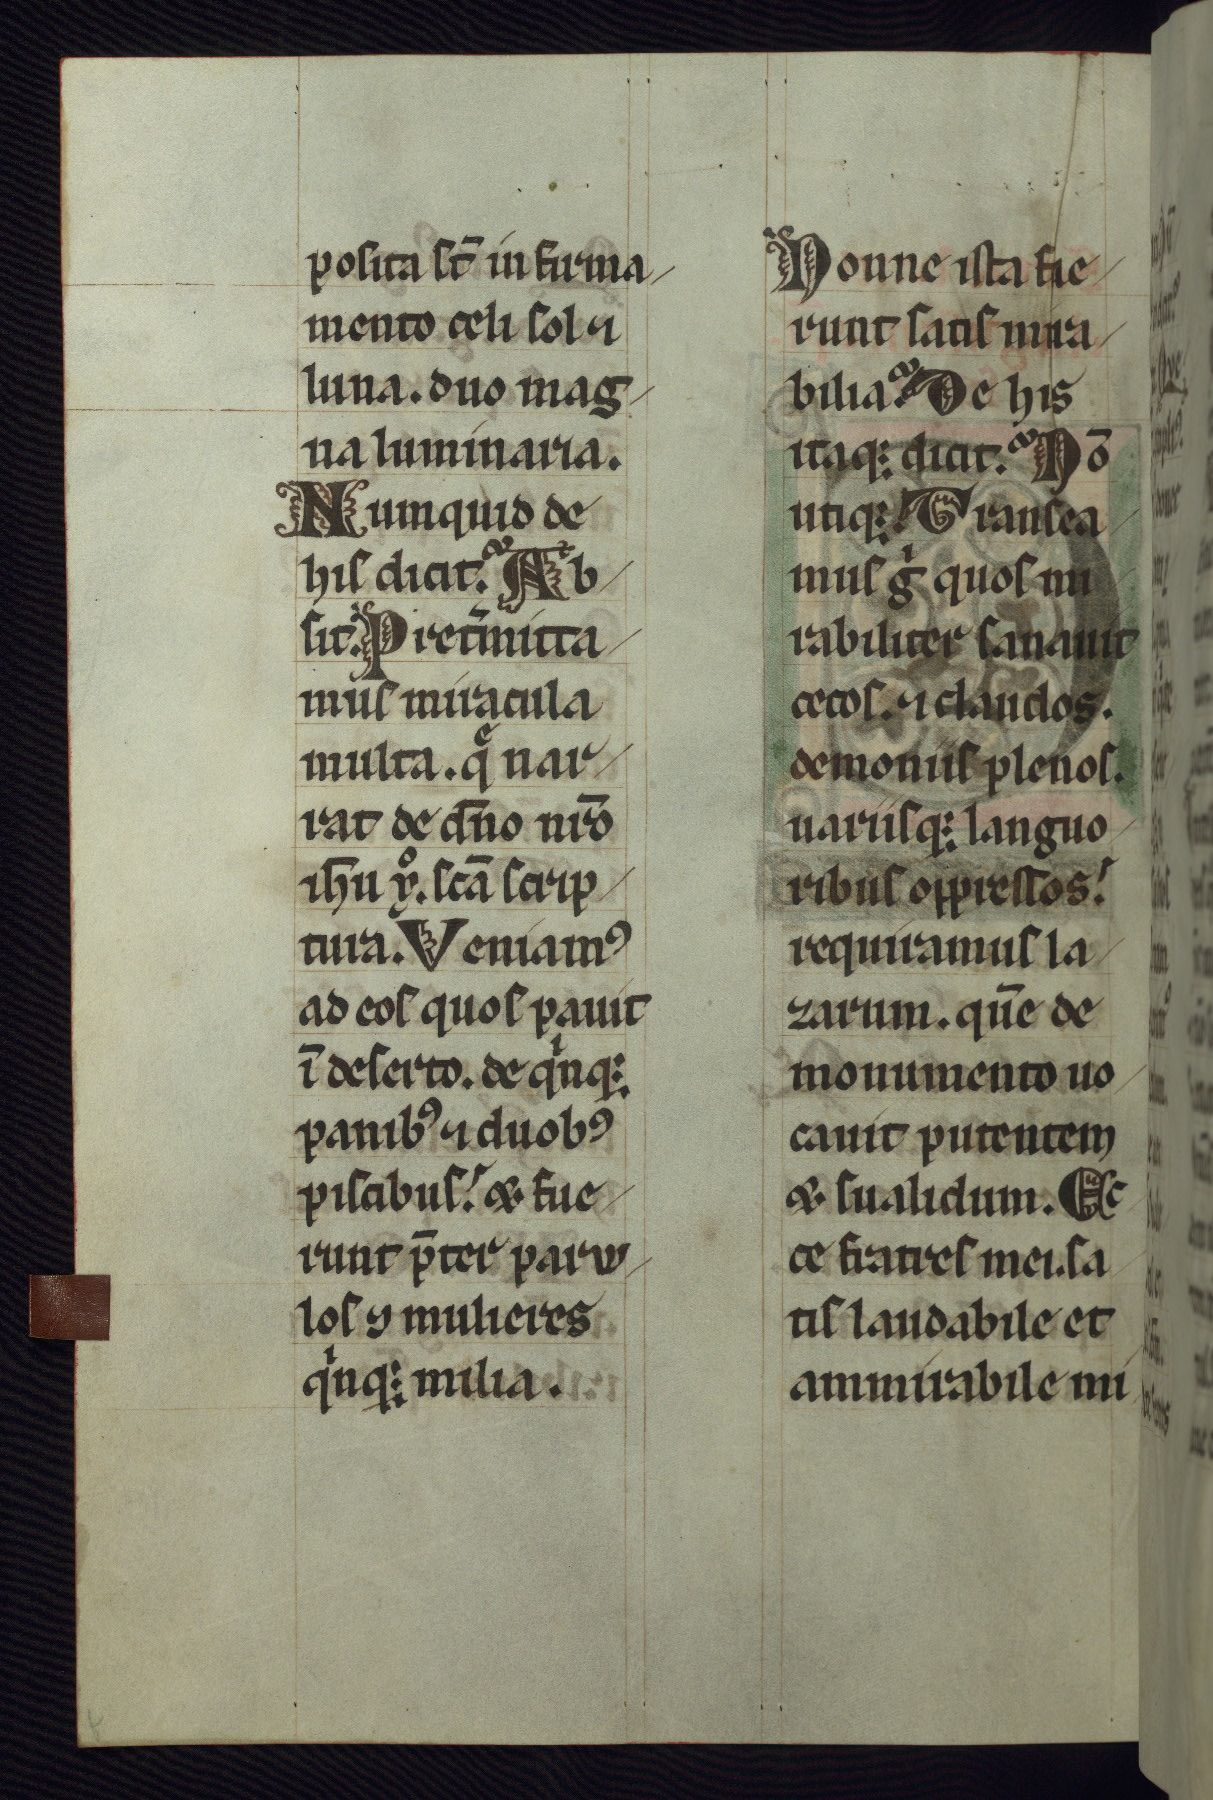 posita st̄ in firma
mento celi sol ⁊
luna. duo mag
na luminaria.
Numquid de
his dicit? Ab
sit. Pret̄mitta
mus miracula
multa. q̄ nar
rat de dn̄o nr̄o
ih̄u xͦp. scā scrip
tura. Veniamꝰ
ad eos quos pauit
ī deserto. de qͥnq;
panibꝰ ⁊ duobꝰ
piscibus! & fue
runt p̄ter paruu
los ꝯ mulieres
qͥnq; milia.
Nonne ista fue
runt satis mira
bilia? De his
itaq; dicit? Nō
utiq;! Transea
mus gͥ quos mi
rabiliter sanauit
cecos. ⁊ claudos.
demoniis plenos.
uariisq; languo
ribus oppressos!
requiramus la
zarum. quē de
monumento uo
cauit putentem
& sualidum. Ec
ce fratres mei. sa
tis laudabile et
ammirabile mi